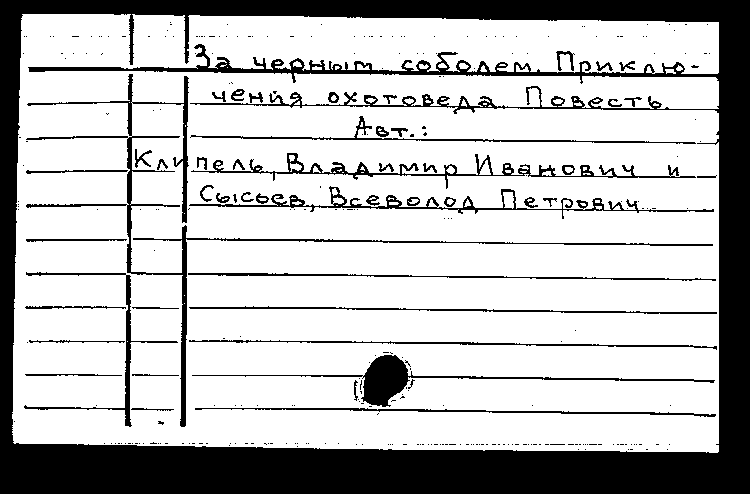 За черным соболем. Приклю-
чения охотоведа. Повесть.
Авт.:
Клипель, Владимир Иванович и
Сысоев, Всеволод Петрович